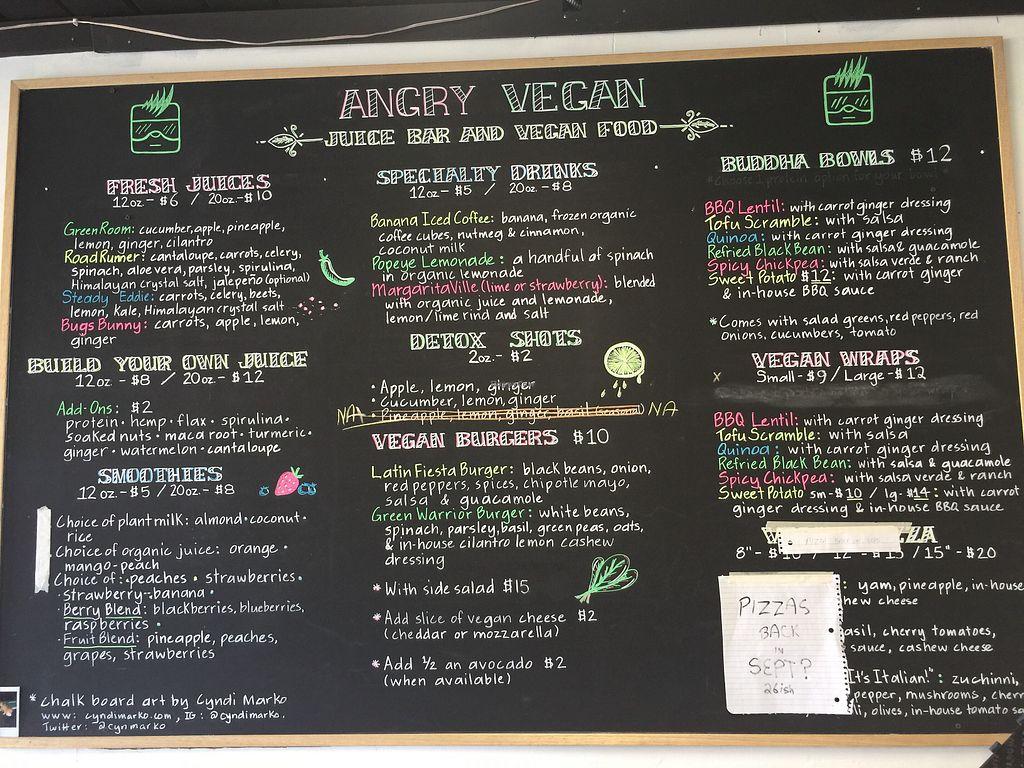 ANGRY VEGAN
JUICE BAR AND VEGAN FOOD
FRESH JUICES
12oz - $6 / 20oz - $10
Green Room: cucumber, apple, pineapple,
lemon, ginger, cilantro
Road Runner: cantaloupe, carrots, celery,
spinach, aloe vera, parsley, spirulina,
Himalayan crystal salt, jalapeño (optional)
Steady Eddie: carrots, celery, beets,
lemon, kale, Himalayan crystal salt
Bugs Bunny: carrots, apple, lemon,
ginger
BUILD YOUR OWN JUICE
12oz - $8 / 20oz - $12
Add-Ons: $2
protein • hemp • flax • spirulina •
soaked nuts • maca root • turmeric •
ginger • watermelon • cantaloupe
SMOOTHIES
12oz - $5 / 20oz - $8
Choice of plant milk: almond • coconut •
rice
Choice of organic juice: orange •
mango-peach
Choice of: peaches • strawberries •
strawberry-banana •
Berry Blend: blackberries, blueberries,
raspberries •
Fruit Blend: pineapple, peaches,
grapes, strawberries
* chalk board art by Cyndi Marko
www: cyndimarko.com, IG: @cyndimarko.
Twitter: @cynmarko
SPECIALTY DRINKS
12oz - $5 / 20oz - $8
Banana Iced Coffee: banana, frozen organic
coffee cubes, nutmeg & cinnamon,
coconut milk
Popeye Lemonade: a handful of spinach
in organic lemonade
MargaritaVille (lime or strawberry): blended
with organic juice and lemonade,
lemon/lime rind and salt
DETOX SHOTS
2oz. - $2
• Apple, lemon, ginger
• Cucumber, lemon, ginger
NA • Pineapple, lemon, ginger, basil (seasonal) NA
VEGAN BURGERS $10
Latin Fiesta Burger: black beans, onion,
red peppers, spices, chipotle mayo,
salsa & guacamole
Green Warrior Burger: white beans,
spinach, parsley, basil, green peas, oats,
& in-house cilantro lemon cashew
dressing
* With side salad $15
* Add slice of vegan cheese $2
(cheddar or mozzarella)
* Add ½ an avocado $2
(when available)
BUDDHA BOWLS $12
*choose 1 protein option for your bowl
BBQ Lentil: with carrot ginger dressing
Tofu Scramble: with salsa
Quinoa: with carrot ginger dressing
Refried Black Bean: with salsa & guacamole
Spicy Chickpea: with salsa verde & ranch
Sweet Potato $12: with carrot ginger
& in-house BBQ sauce
*Comes with salad greens, red peppers, red
onions, cucumbers, tomato
VEGAN WRAPS
x Small - $9 / Large - $12
BBQ Lentil: with carrot ginger dressing
Tofu Scramble: with salsa
Quinoa: with carrot ginger dressing
Refried Black Bean: with salsa & guacamole
Spicy Chickpea: with salsa verde & ranch
Sweet Potato sm - $10 / lg - $14: with carrot
ginger dressing & in-house BBQ sauce
8" - $10 12" - $15 / 15" - $20
: yam, pineapple, in-house
cheese
cherry tomatoes,
sauce, cashew cheese
It's Italian!": zucchini,
pepper, mushrooms, cherry
olives, in-house tomato
PIZZAS
BACK
IN
SEPT?
26ish